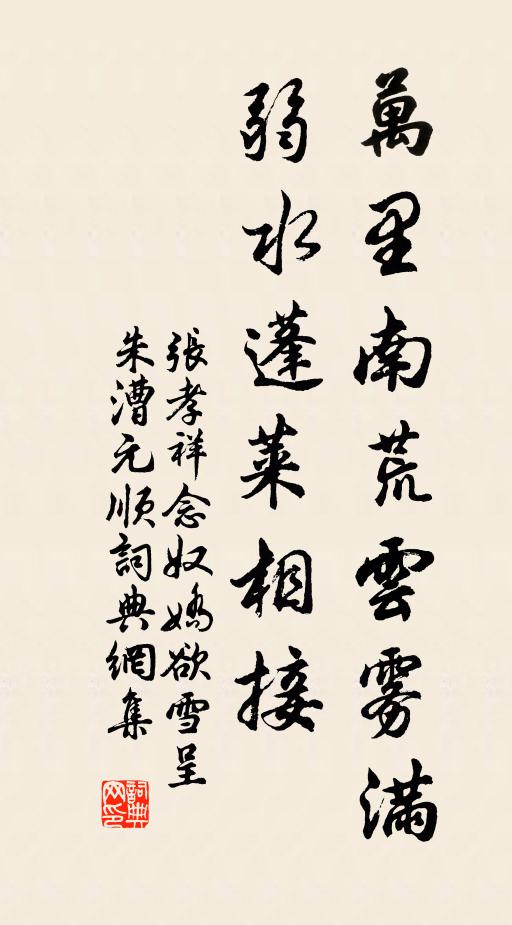 萬里南荒雲霧滿
弱水蓬萊相接
張孝祥念奴嬌欲雪呈
朱漕元順詞典網集
詞典
网印